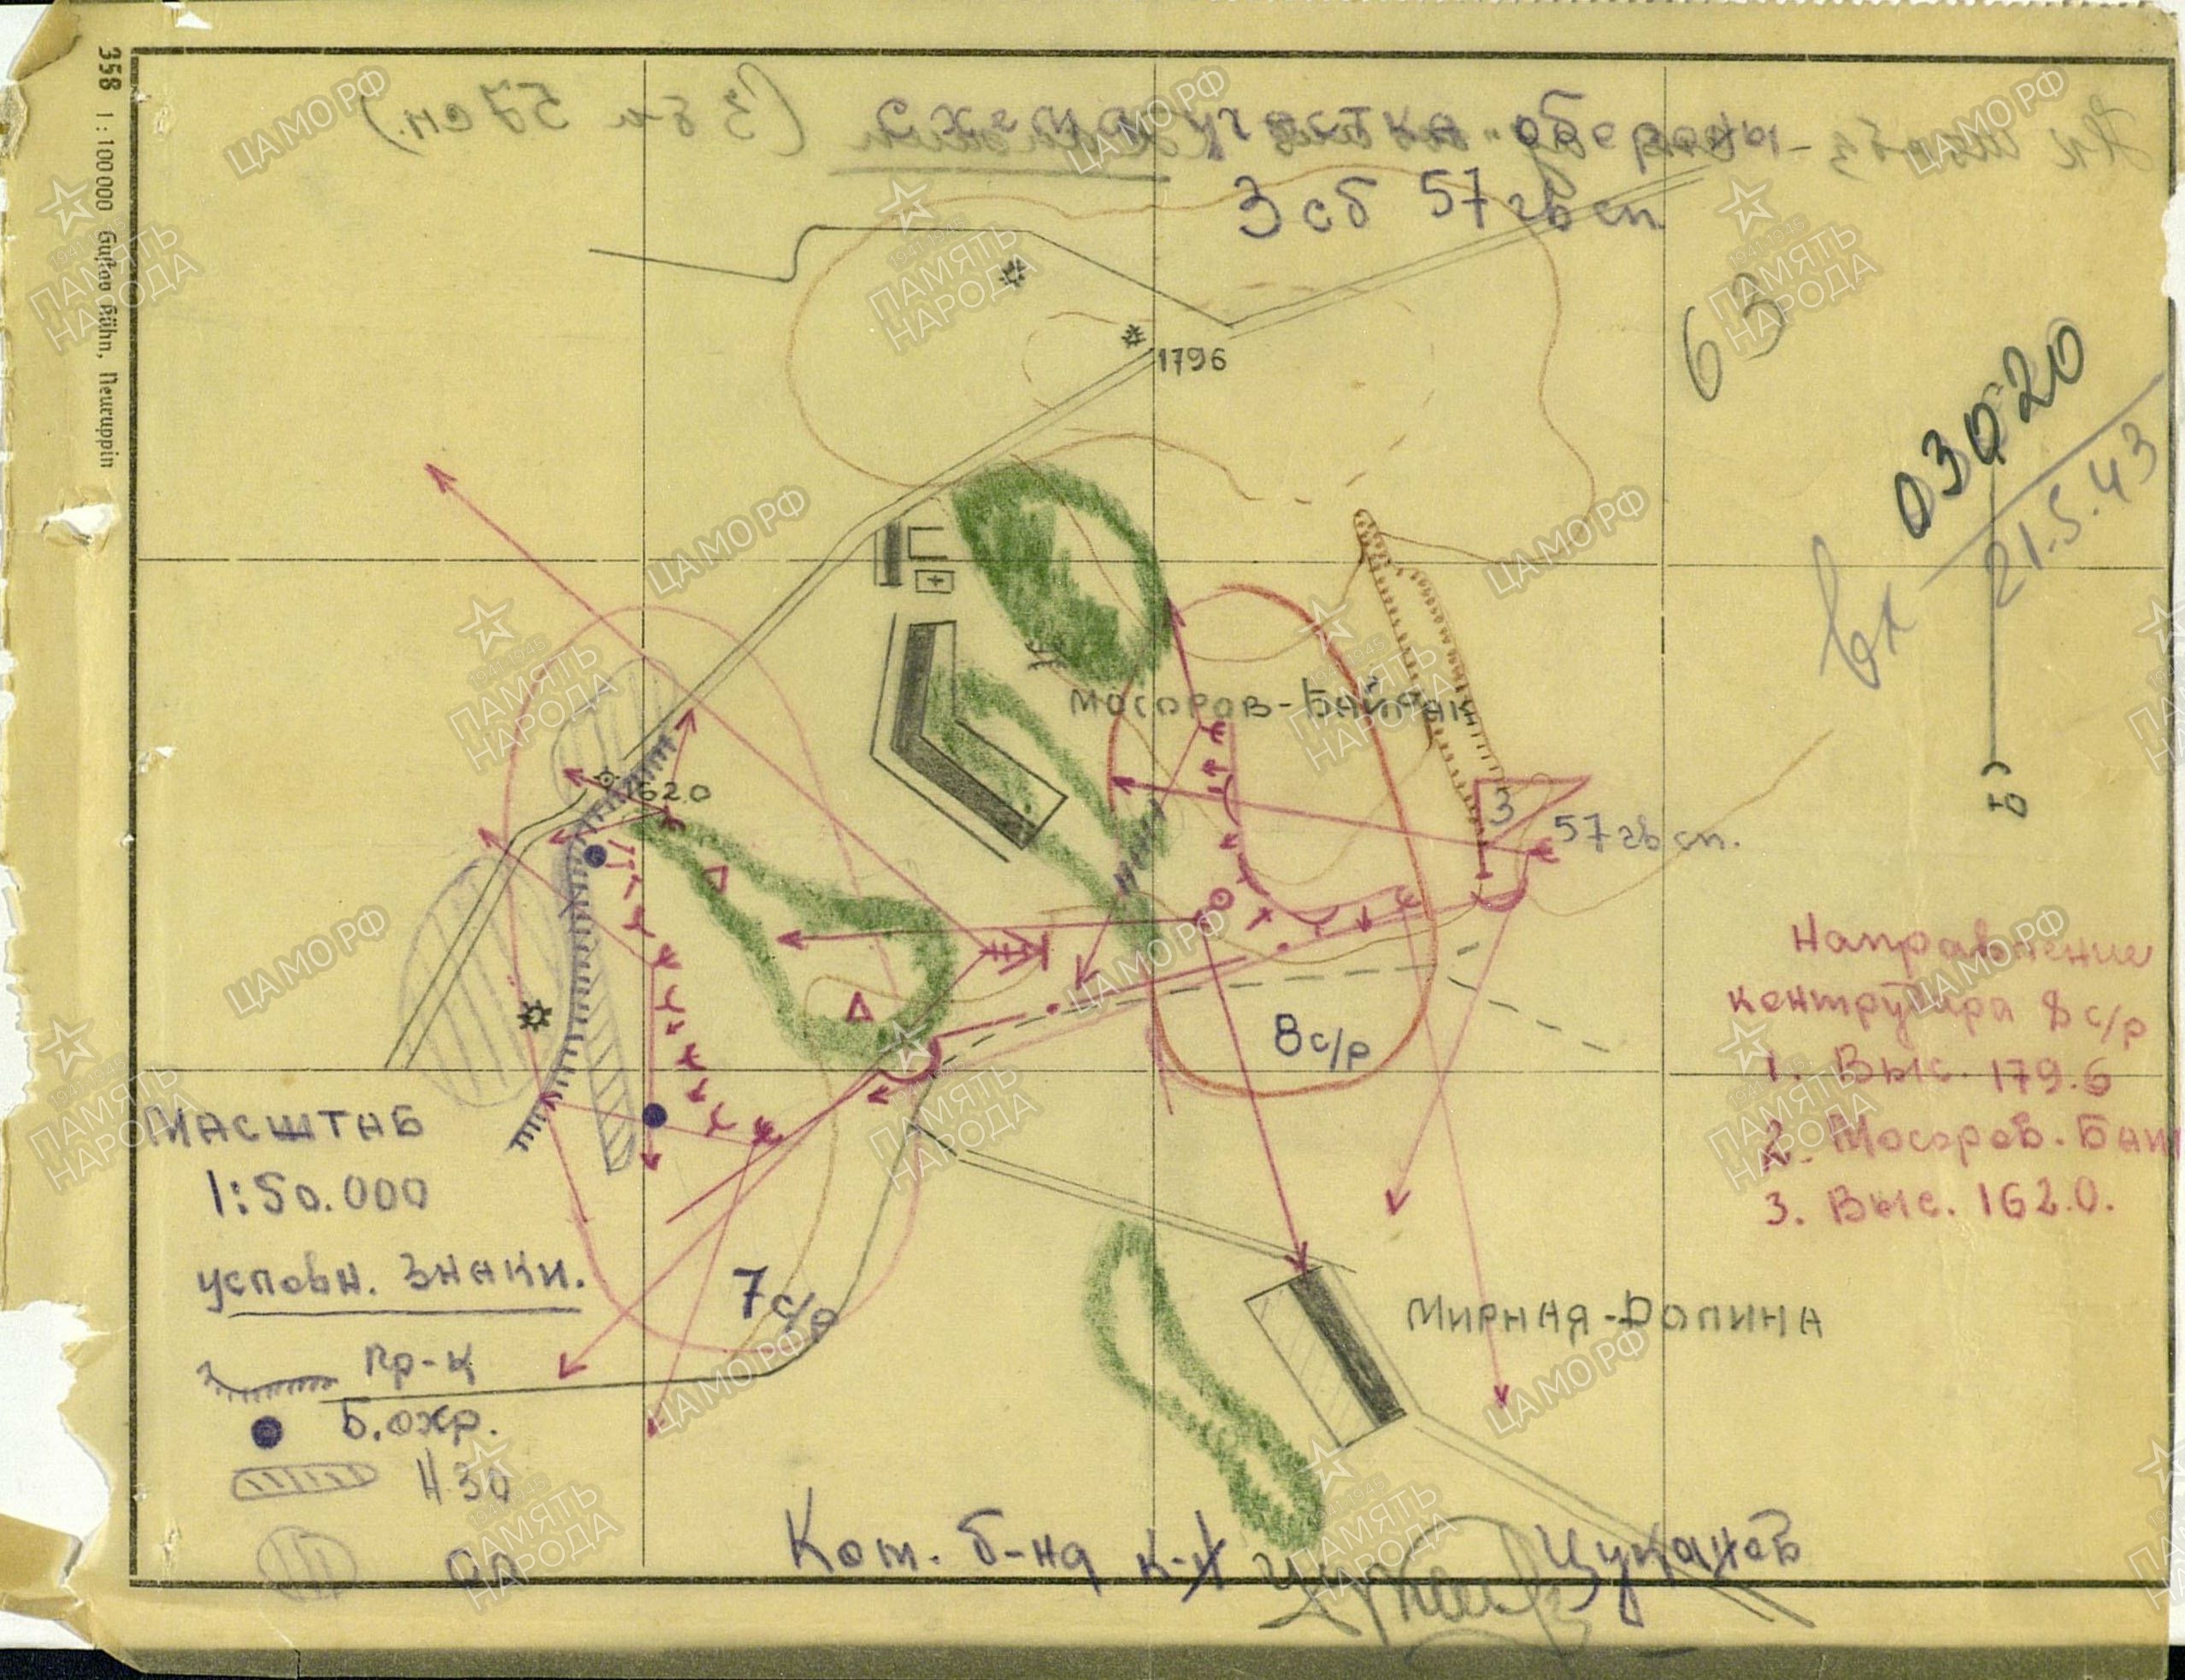 358 1 : 100 000 Gustav Kühn, Neuruppin
Схема участка обороны
3 сб 57 гв сп
63
03020
Вх
21.5.43
1796
Мосоров-Байрак
162.0
3
57 гв сп.
8 с/р
7 с/р
Направление
контрудара 8 с/р
1. Выс. 179.6
2. Мосоров.
3. Выс. 162.0.
Масштаб
1:50.000
условн. знаки.
пр-к
Б. охр.
НЗО
Мирная-Долина
Ком. б-на к-н Цуканов
ЦАМО РФ
1941-1945
ПАМЯТЬ
НАРОДА